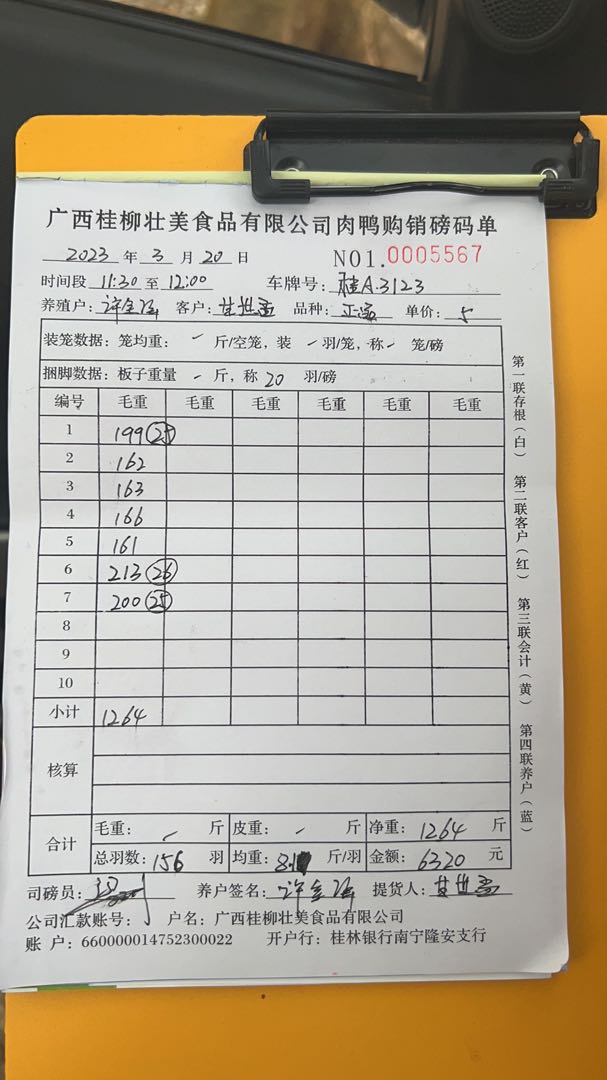 广西桂柳壮美食品有限公司肉鸭购销磅码单
2023 年 3 月 20 日 NO1.0005567
时间段 11:30 至 12:00 车牌号: 桂A:3123
养殖户: 许金 客户: 甘世 品种: 单价: 5
装笼数据: 笼均重: - 斤/空笼, 装 - 羽/笼, 称 - 笼/磅
捆脚数据: 板子重量 - 斤, 称 20 羽/磅
编号 毛重 毛重 毛重 毛重 毛重 毛重
1 199 25
2 162
3 163
4 166
5 161
6 213 26
7 200 25
8
9
10
小计 1264
核算
合计 毛重: - 斤 皮重: - 斤 净重: 1264 斤
总羽数: 156 羽 均重: 8.1 斤/羽 金额: 6320 元
司磅员: 养户签名: 许金 提货人: 甘世
公司汇款账号: 户名: 广西桂柳壮美食品有限公司
账 户: 660000014752300022 开户行: 桂林银行南宁隆安支行
第一联存根(白) 第二联客户(红) 第三联会计(黄) 第四联养户(蓝)